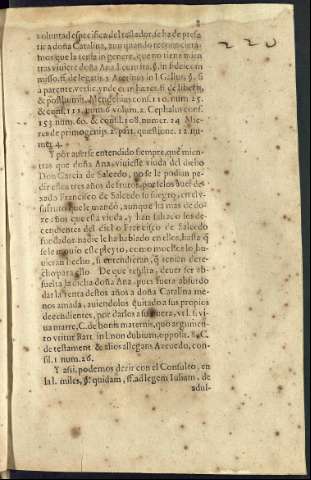 220
voluntad especifica del testador, se ha de presa
tic a doña Catalina, aun quando
mos que la testa in genere, que no tiene mien
tras viuiere doña Ana
misso, ff. de legatis 2. Aretinus in l. Gallus §. si
a parente, versic. vnde et in hæres. ff. de liberis,
& posthumis, Menochius cons. 110. num. 25.
& cons. 113. num. 6. volum. 2. Cephalus cons.
153. num. 60. & cons. 108. numer. 24. Mie
res de primogenijs 2. part. questione. 12. nu
mer. 4.
Y por auerse entendido siempre, que mien
tras que doña Ana, viuiesse viuda del dicho
Don Garcia de Salcedo, no se le podian pe
dir estos tres años de frutos, por el
xada Francisco de Salcedo su suegro, en el v
sufruto que le mandò, aunque ha mas de do
ze años que està viuda, y han faltado los de-
cendientes del dicho Francisco de Salcedo
fundador, nadie le ha hablado en ellos, hasta q̃
se le mouio este pleyto, como muchos lo hu
uieran hecho, si entendieran, q̃ tenian dere-
cho para ello. De que resulta, deuer ser ab
suelta la dicha doña Ana, pues fuera absurdo
dar la renta destos años a doña Catalina me
nos amada, auiendolos quitado a sus propios
decendientes, por darlos a su nuera, vt l. si vi
ua matre, C. de bonis maternis, quo argumen
to vtitur Bart. in l. non dubium, opposit. 8. C.
de testament. & alios allegans Azeuedo, con
sil. 1. num. 26.
Y assi, podemos dezir con el Consulto, en
la l. miles, §. quidam, ff. ad legem Iuliam, de
adul-